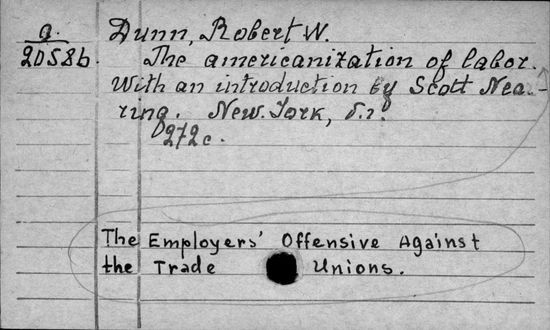 a.
20586.
Dunn, Robert W.
The americanization of labor.
With an introduction by Scott Nea-
ring. New.York,
272c.
The Employers' Offensive Against
the Trade Unions.